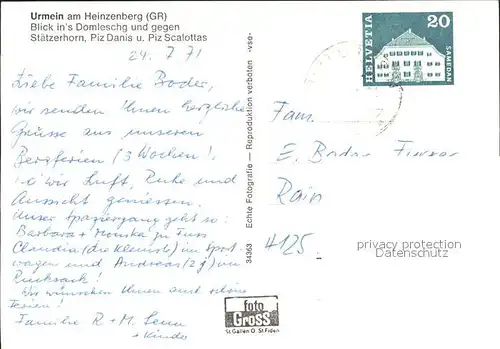 Urmein am Heinzenberg (GR)
Blick in's Domleschg und gegen
Stätzerhorn, Piz Danis u. Piz Scalottas
24. 7. 71
Liebe Familie Bader,
wir senden Ihnen herzliche
Grüsse aus unseren
Bergferien (3 Wochen!,
wir Luft, Ruhe und
Aussicht geniessen.
Unser Spaziergang geht so:
Barbara + Monika zu Fuss
Claudia (die Kleinste) im Sport
wagen und Andreas (2 j) im
Rucksack!
Wir wünschen Ihnen auch schöne
Ferien!
Familie R + M. Senn
+ Kinder
-vso-
Echte Fotografie — Reproduktion verboten
34363
foto
Gross
St. Gallen O. St. Fiden
HELVETIA
20
SAMEDAN
Fam.
E. Bader
Rain
4125
privacy protection
Datenschutz